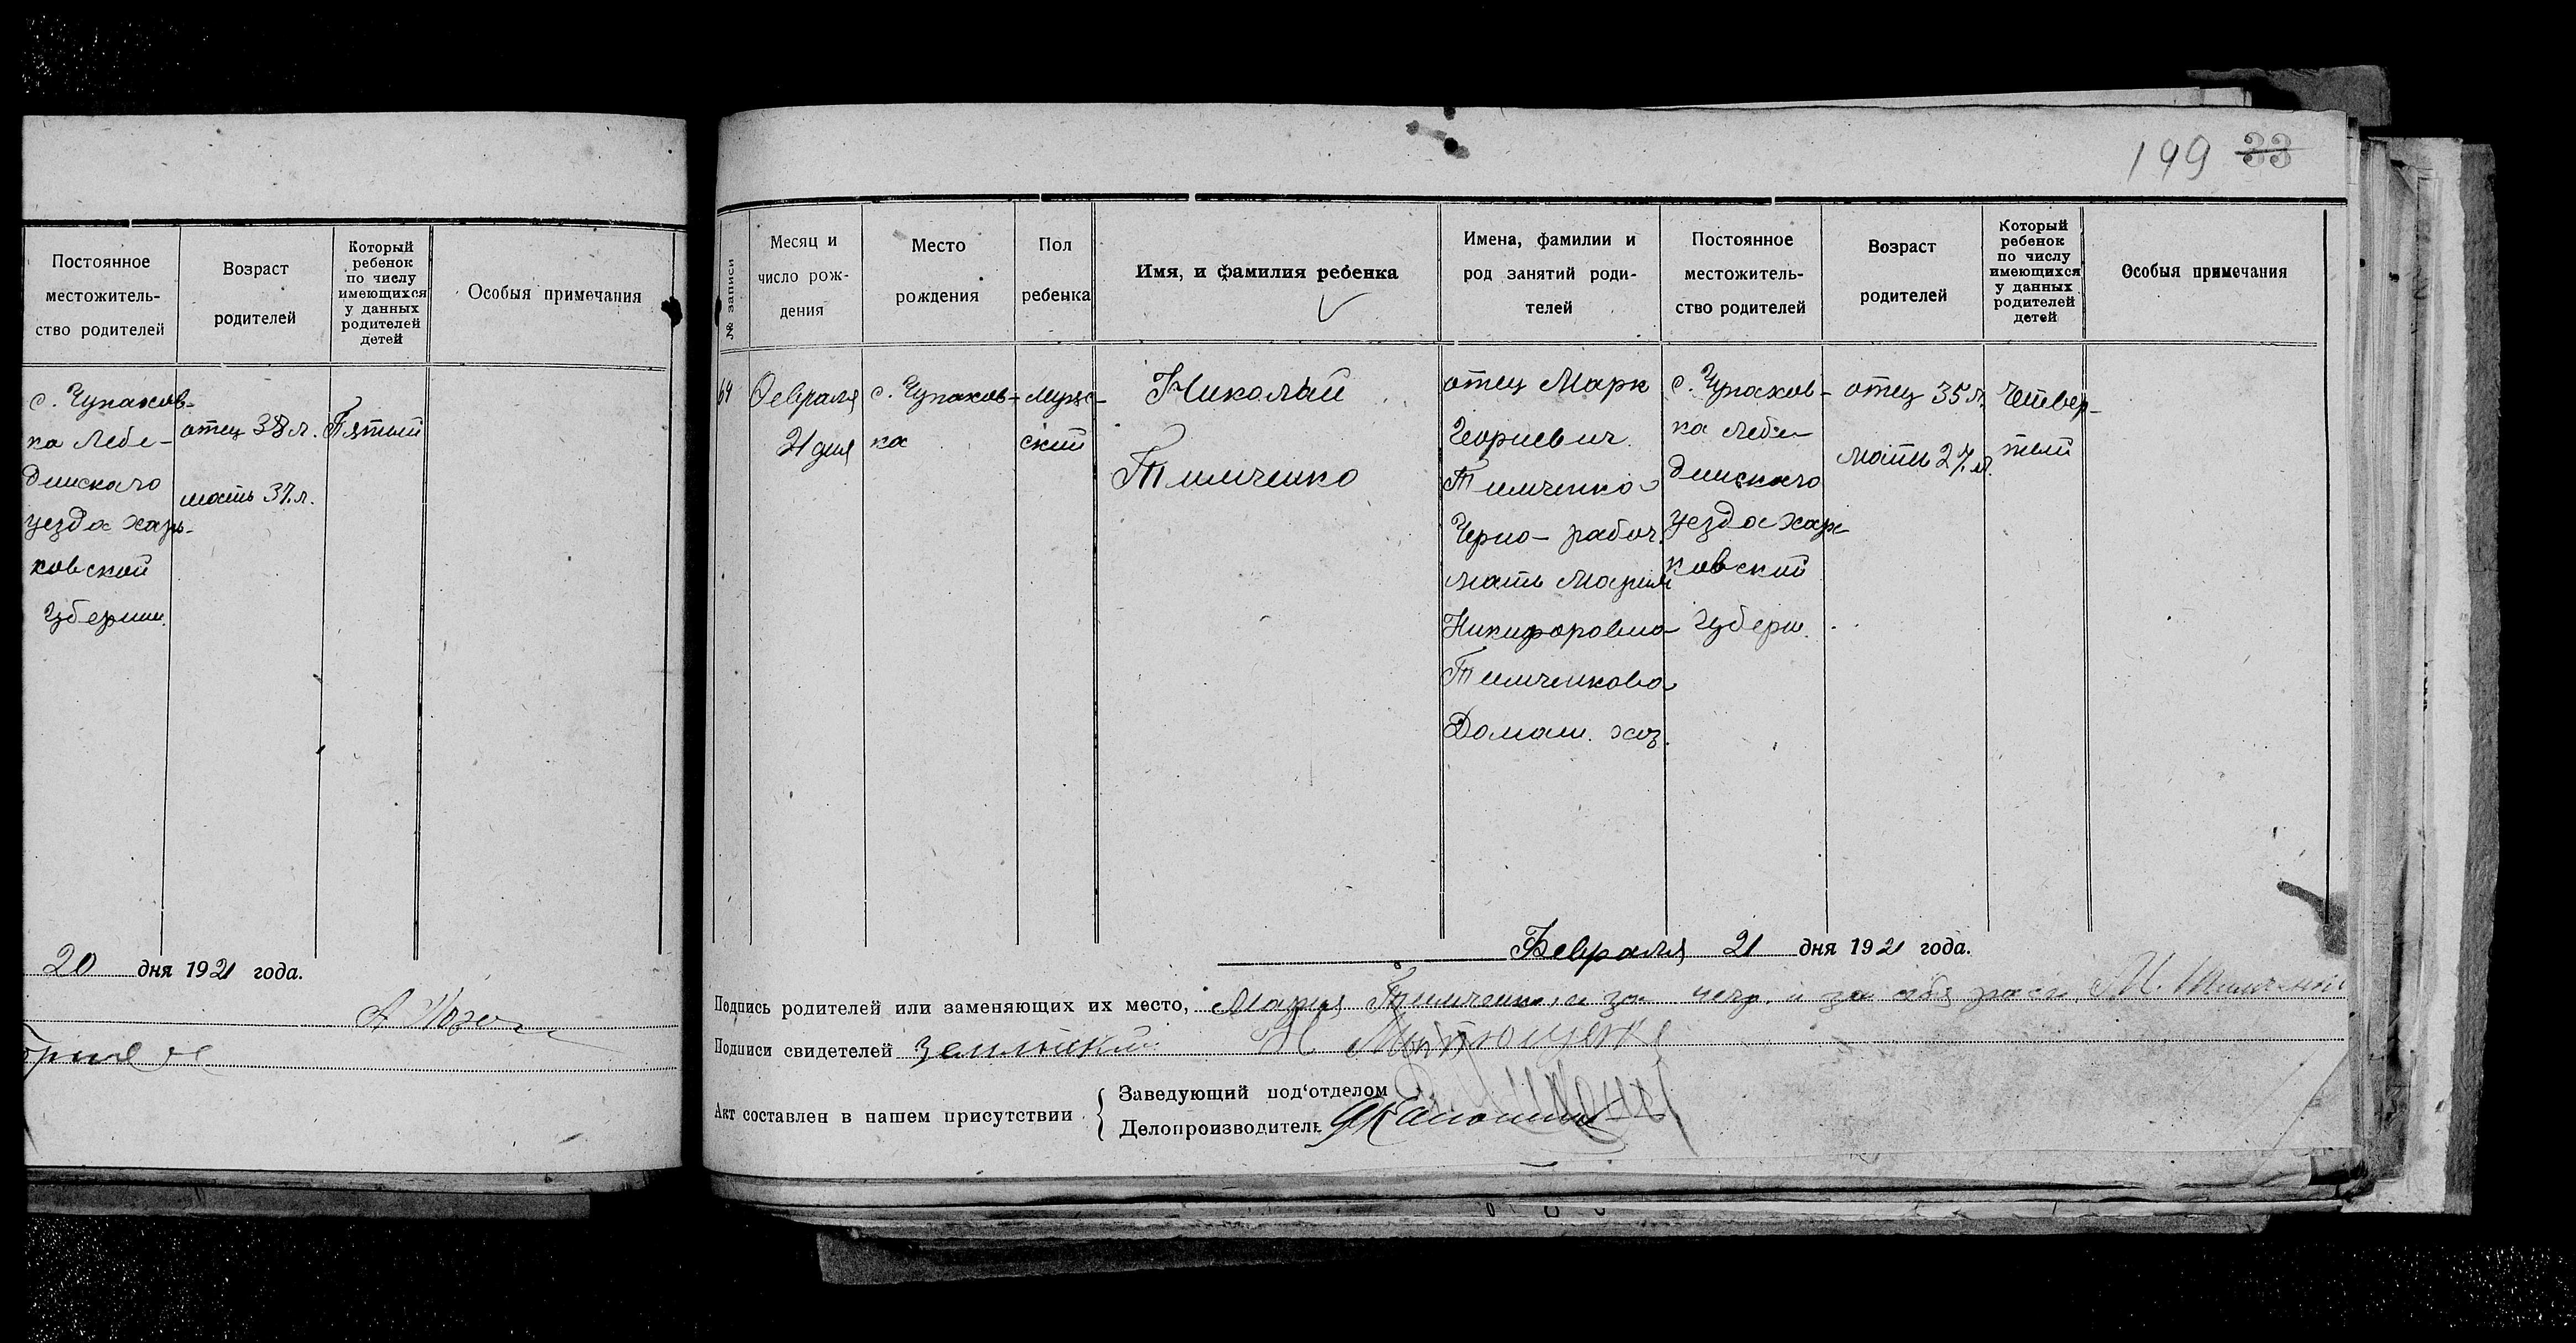 Постоянное
местожитель-
ство родителей
Возраст
родителей
Который
ребенок
по числу
имеющихся
у данных
родителей
детей
Особыя примечания
с. Чупахов-
ка Лебе-
динскаго
уезда Харь-
ковской
Губернии.
отец 38 л.
мать 37 л.
Пятый
20 дня 1921 года.
199 33
№ записи
Месяц и
число рож-
дения
Место
рождения
Пол
ребенка
Имя, и фамилия ребенка
Имена, фамилии и
род занятий роди-
телей
Постоянное
местожитель-
ство родителей
Возраст
родителей
Который
ребенок
по числу
имеющихся
у данных
родителей
детей
Особыя примечания
64
Февраля
21 дня
с. Чупахов-
ка
Муж-
ский
Николай
Тимченко
отец Марк
Георгиевич
Тимченко
Черно-рабоч.
мать Мария
Никифоровна
Тимченкова
Домаш. хоз.
с. Чупахов-
ка Лебе-
динскаго
уезда Харь-
ковский
Губерн.
отец 35 л.
мать 27 л.
Четвер-
тый
Февраля 21 дня 1921 года.
Подпись родителей или заменяющих их место, Мария Тимченко, и за и за себя
Подписи свидетелей
Акт составлен в нашем присутствии
Заведующий под'отделом
Делопроизводитель